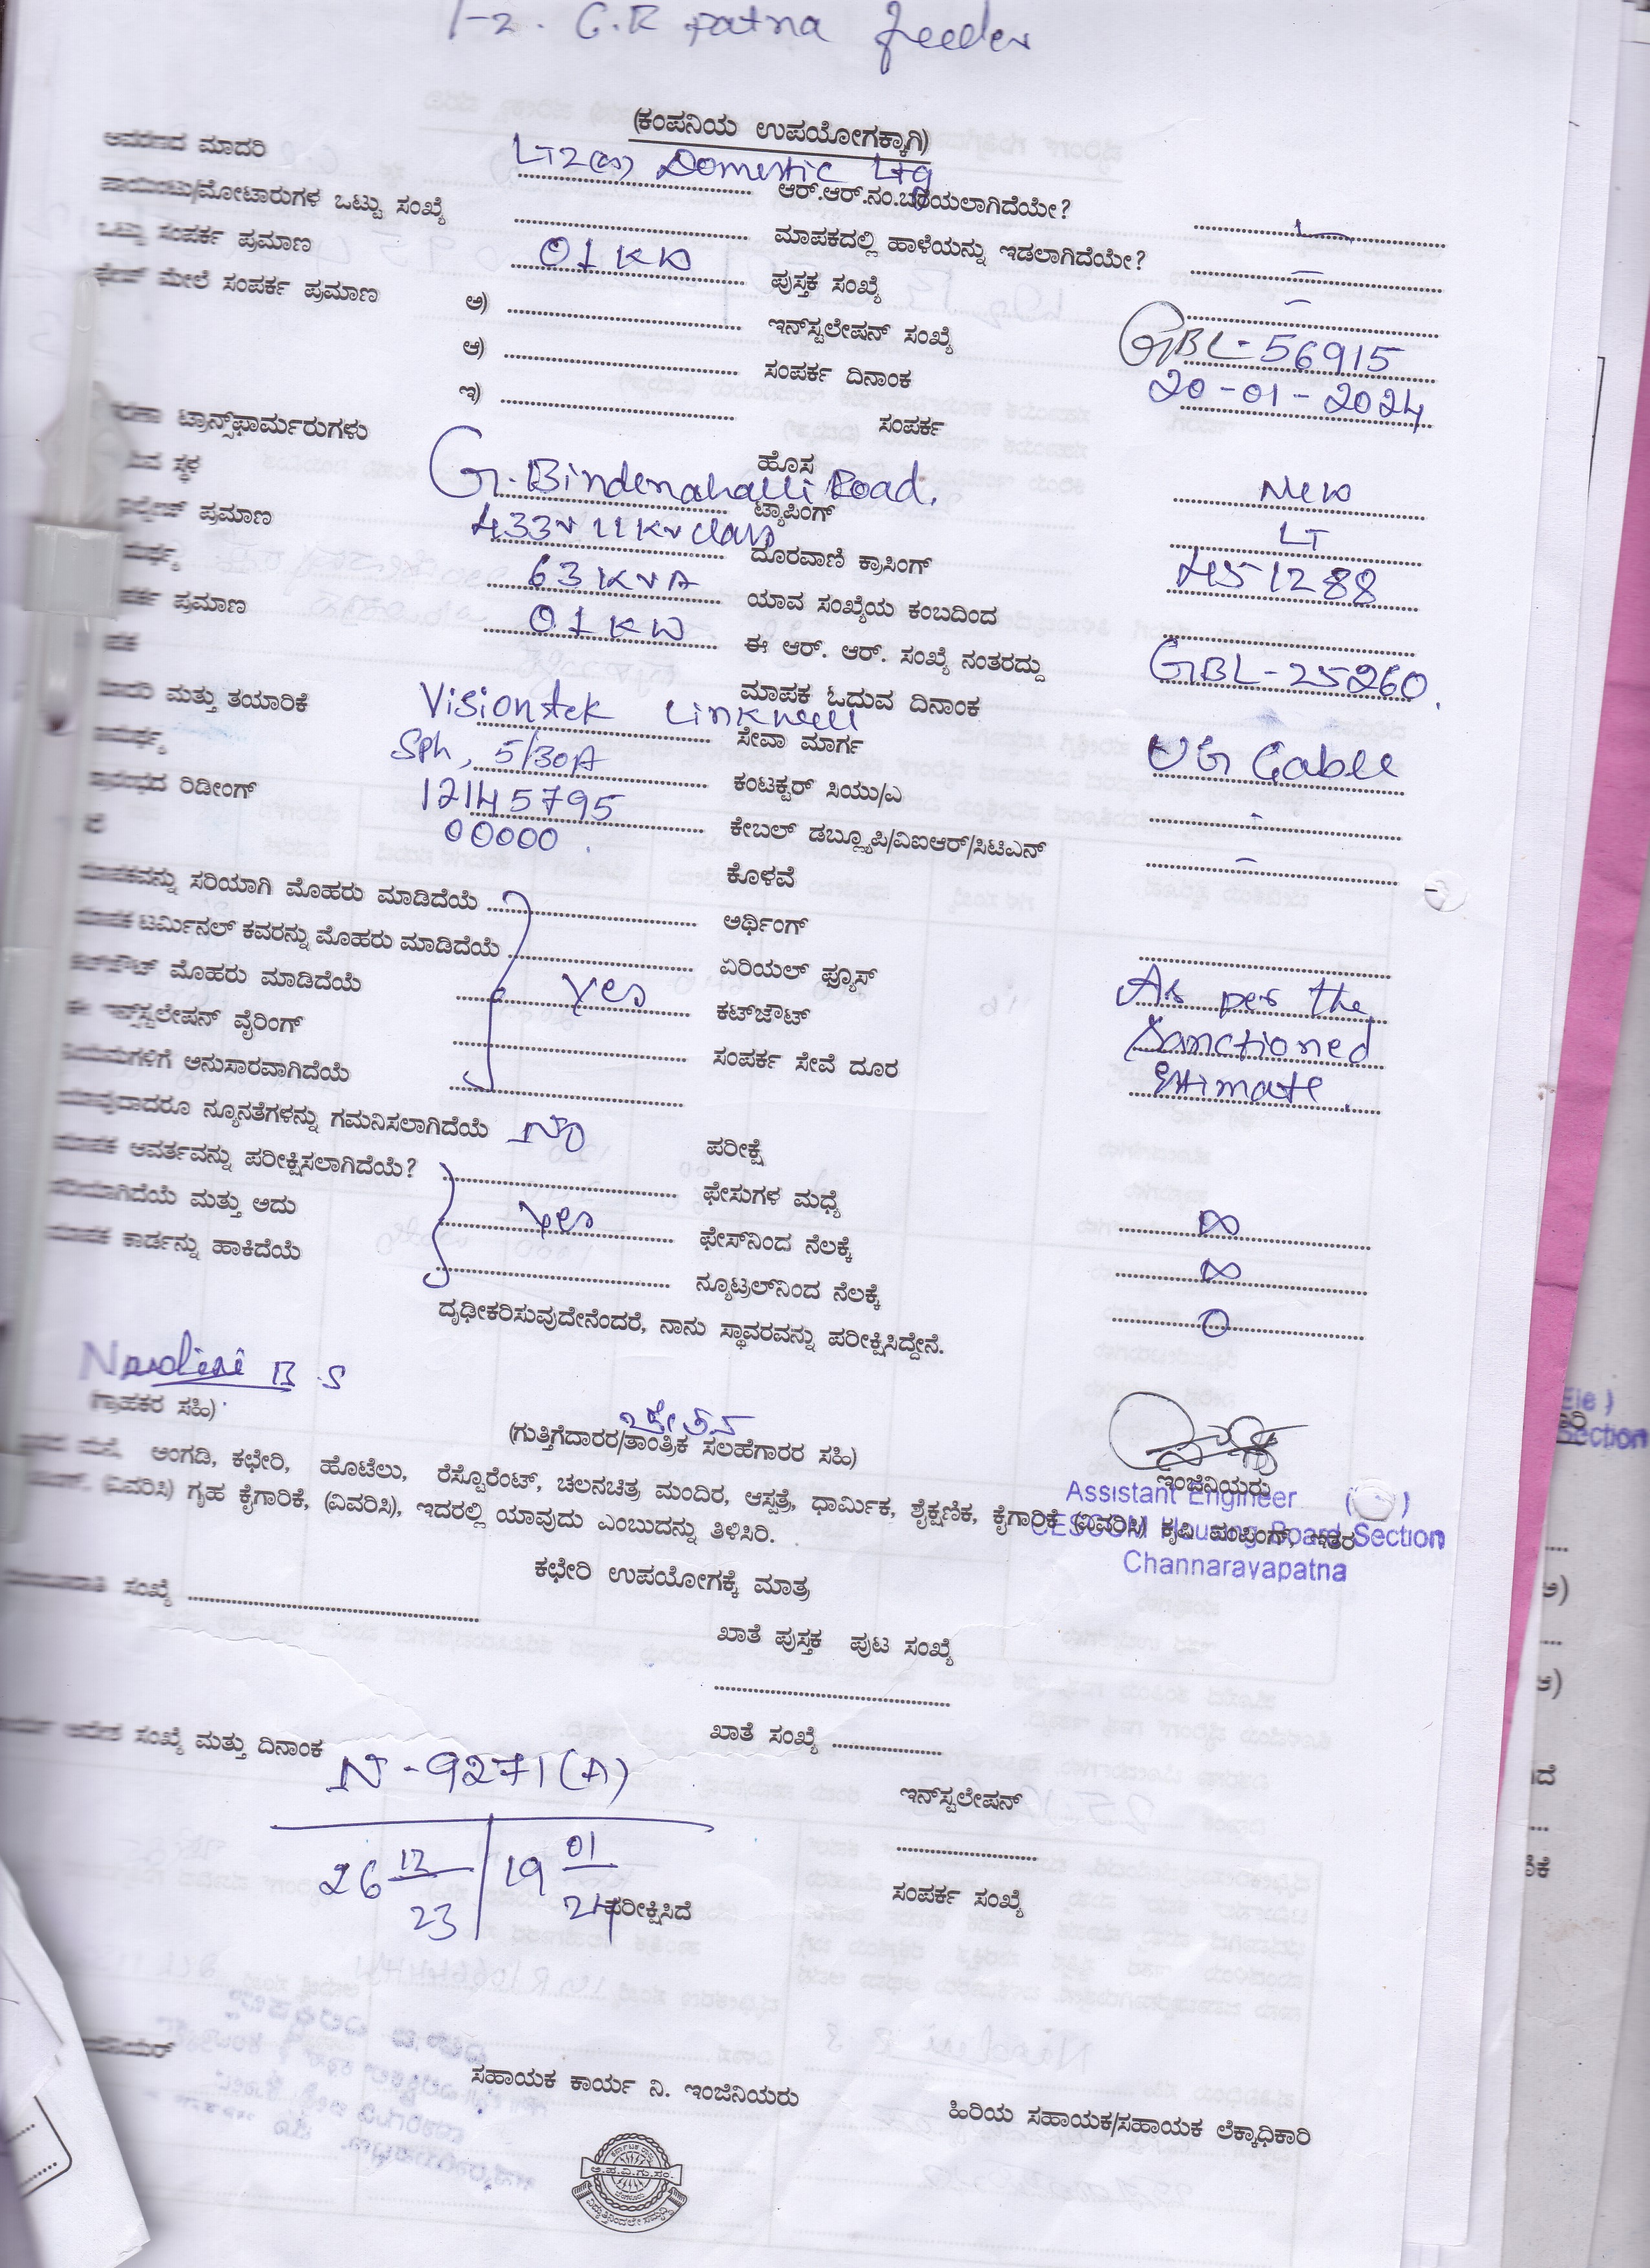 1-2. C.R patna feeder
(ಕಂಪನಿಯ ಉಪಯೋಗಕ್ಕಾಗಿ)
ಆವರಣದ ಮಾದರಿ LT2(a) Domestic Ltg ಆರ್.ಆರ್.ನಂ.ಬರೆಯಲಾಗಿದೆಯೇ?
ಪಾಯಿಂಟು/ಮೋಟಾರುಗಳ ಒಟ್ಟು ಸಂಖ್ಯೆ ಮಾಪಕದಲ್ಲಿ ಹಾಳೆಯನ್ನು ಇಡಲಾಗಿದೆಯೇ? –
ಒಟ್ಟು ಸಂಪರ್ಕ ಪ್ರಮಾಣ 01 KW ಪುಸ್ತಕ ಸಂಖ್ಯೆ –
ಮೇಲೆ ಸಂಪರ್ಕ ಪ್ರಮಾಣ ಅ) ಇನ್‌ಸ್ಟಲೇಷನ್ ಸಂಖ್ಯೆ GBL-56915
ಆ) ಸಂಪರ್ಕ ದಿನಾಂಕ 20-01-2024
ಇ) ಸಂಪರ್ಕ
ಟ್ರಾನ್ಸ್‌ಫಾರ್ಮರುಗಳು ಹೊಸ New
ಸ್ಥಳ G. Bindenahalli Road. ಟ್ಯಾಪಿಂಗ್ LT
ಪ್ರಮಾಣ 433v 11Kv class ದೂರವಾಣಿ ಕ್ರಾಸಿಂಗ್ 451288
63 KVA ಯಾವ ಸಂಖ್ಯೆಯ ಕಂಬದಿಂದ
ಪ್ರಮಾಣ 01 KW ಈ ಆರ್. ಆರ್. ಸಂಖ್ಯೆ ನಂತರದ್ದು GBL-25260.
ಮಾಪಕ ಓದುವ ದಿನಾಂಕ
ಮಾದರಿ ಮತ್ತು ತಯಾರಿಕೆ Visiontek Linkwell ಸೇವಾ ಮಾರ್ಗ UG Cable
ಸಾಮರ್ಥ್ಯ Sph, 5/30A ಕಂಟಕ್ಟರ್ ಸಿಯು/ಎ -
ರಿಡೀಂಗ್ 12145795 ಕೇಬಲ್ ಡಬ್ಲ್ಯೂಪಿ/ವಿಐಆರ್/ಸಿಟಿಎನ್ –
00000. ಕೊಳವೆ
ಮಾಪಕವನ್ನು ಸರಿಯಾಗಿ ಮೊಹರು ಮಾಡಿದೆಯೆ ಅರ್ಥಿಂಗ್
ಮಾಪಕ ಟರ್ಮಿನಲ್ ಕವರನ್ನು ಮೊಹರು ಮಾಡಿದೆಯೆ ಏರಿಯಲ್ ಫ್ಯೂಸ್
ಕಟ್‌ಔಟ್ ಮೊಹರು ಮಾಡಿದೆಯೆ Yes ಕಟ್‌ಔಟ್ As per the
ಈ ಇನ್ಸ್‌ಸ್ಟಲೇಷನ್ ವೈರಿಂಗ್ ಸಂಪರ್ಕ ಸೇವೆ ದೂರ Sanctioned
ನಿಯಮಗಳಿಗೆ ಅನುಸಾರವಾಗಿದೆಯೆ Estimate.
ಯಾವುದಾದರೂ ನ್ಯೂನತೆಗಳನ್ನು ಗಮನಿಸಲಾಗಿದೆಯೆ No ಪರೀಕ್ಷೆ
ಮಾಪಕ ಆವರ್ತವನ್ನು ಪರೀಕ್ಷಿಸಲಾಗಿದೆಯೆ? ಫೇಸುಗಳ ಮಧ್ಯೆ ∞
ಸರಿಯಾಗಿದೆಯೆ ಮತ್ತು ಅದು Yes ಫೇಸ್‌ನಿಂದ ನೆಲಕ್ಕೆ ∞
ಮಾಪಕ ಕಾರ್ಡನ್ನು ಹಾಕಿದೆಯೆ ನ್ಯೂಟ್ರಲ್‌ನಿಂದ ನೆಲಕ್ಕೆ 0
ದೃಢೀಕರಿಸುವುದೇನೆಂದರೆ, ನಾನು ಸ್ಥಾವರವನ್ನು ಪರೀಕ್ಷಿಸಿದ್ದೇನೆ.
B.S
(ಗ್ರಾಹಕರ ಸಹಿ) (ಗುತ್ತಿಗೆದಾರರ/ತಾಂತ್ರಿಕ ಸಲಹೆಗಾರರ ಸಹಿ) ಇಂಜಿನಿಯರು
Assistant Engineer
CESCOM Housing Board Section
Channarayapatna
ಮನೆ, ಅಂಗಡಿ, ಕಛೇರಿ, ಹೊಟೆಲು, ರೆಸ್ಟೊರೆಂಟ್, ಚಲನಚಿತ್ರ ಮಂದಿರ, ಆಸ್ಪತ್ರೆ, ಧಾರ್ಮಿಕ, ಶೈಕ್ಷಣಿಕ, ಕೈಗಾರಿಕೆ (ವಿವರಿಸಿ) ಕೃಷಿ ಪಂಪಿಂಗ್, ಇತರ
(ವಿವರಿಸಿ) ಗೃಹ ಕೈಗಾರಿಕೆ, (ವಿವರಿಸಿ), ಇದರಲ್ಲಿ ಯಾವುದು ಎಂಬುದನ್ನು ತಿಳಿಸಿರಿ.
ಕಛೇರಿ ಉಪಯೋಗಕ್ಕೆ ಮಾತ್ರ
ಸಂಖ್ಯೆ
ಖಾತೆ ಪುಸ್ತಕ ಪುಟ ಸಂಖ್ಯೆ
ಆದೇಶ ಸಂಖ್ಯೆ ಮತ್ತು ದಿನಾಂಕ ಖಾತೆ ಸಂಖ್ಯೆ
N-9271(A) ಇನ್‌ಸ್ಟಲೇಷನ್
26 12/23 | 19 01/24
ಪರೀಕ್ಷಿಸಿದೆ ಸಂಪರ್ಕ ಸಂಖ್ಯೆ
ಸಹಾಯಕ ಕಾರ್ಯ ನಿ. ಇಂಜಿನಿಯರು
ಹಿರಿಯ ಸಹಾಯಕ/ಸಹಾಯಕ ಲೆಕ್ಕಾಧಿಕಾರಿ